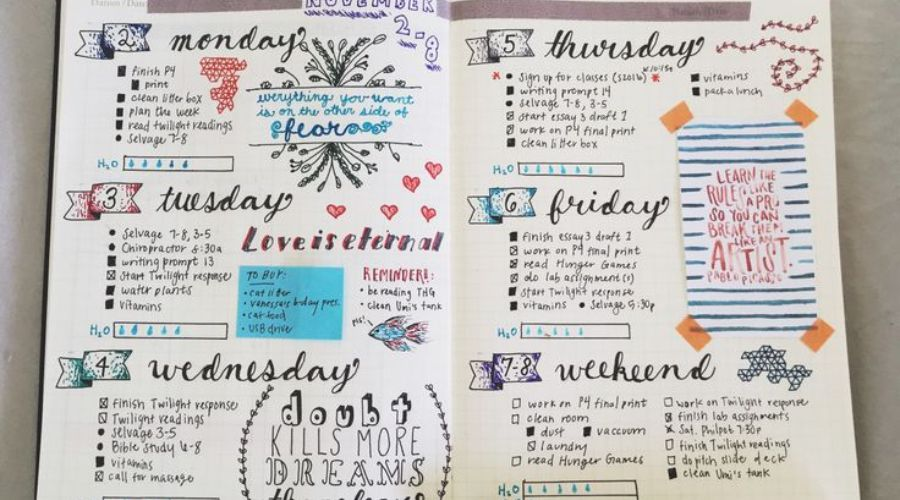 Dation / Date
NOVEMBER
2-8
2 monday
finish P4
print
clean litter box
plan the week
read twilight readings
Selvage 7-8
H2O
everything you want
is on the other side of
fear
3 tuesday
Selvage 7-8, 3-5
Chiropractor 8:30a
writing prompt 13
Start Twilight response
water plants
vitamins
H2O
Love is eternal
TO BUY:
• cat litter
• vanessa's b-day pres.
• cat food
• USB drive
REMINDER!:
• be reading THG
• clean Umi's tank
pls!
4 wednesday
finish Twilight response
Twilight readings
Selvage 3-5
Bible Study 6-8
vitamins
call for massage
doubt
KILLS MORE
DREAMS
5 thursday
sign up for classes (S2016)
writing prompt 14
selvage 7-8, 3-5
start essay 3 draft 1
work on P4 final print
clean litter box
vitamins
pack lunch
H2O
6 friday
finish essay 3 draft 1
work on P4 final print
read Hunger Games
do lab assignment(s)
start Twilight response
vitamins • Selvage 5:30p
H2O
LEARN THE
RULES LIKE
A PRO
SO YOU CAN
BREAK THEM
LIKE AN
ARTIST
PABLO PICASSO
7-8 weekend
work on P4 final print
clean room
dust vaccuum
laundry
read Hunger Games
work on Twilight response
finish lab assignments
Sat. Philpot 7:30p
finish Twilight readings
do pitch slide deck
clean Umi's tank
H2O